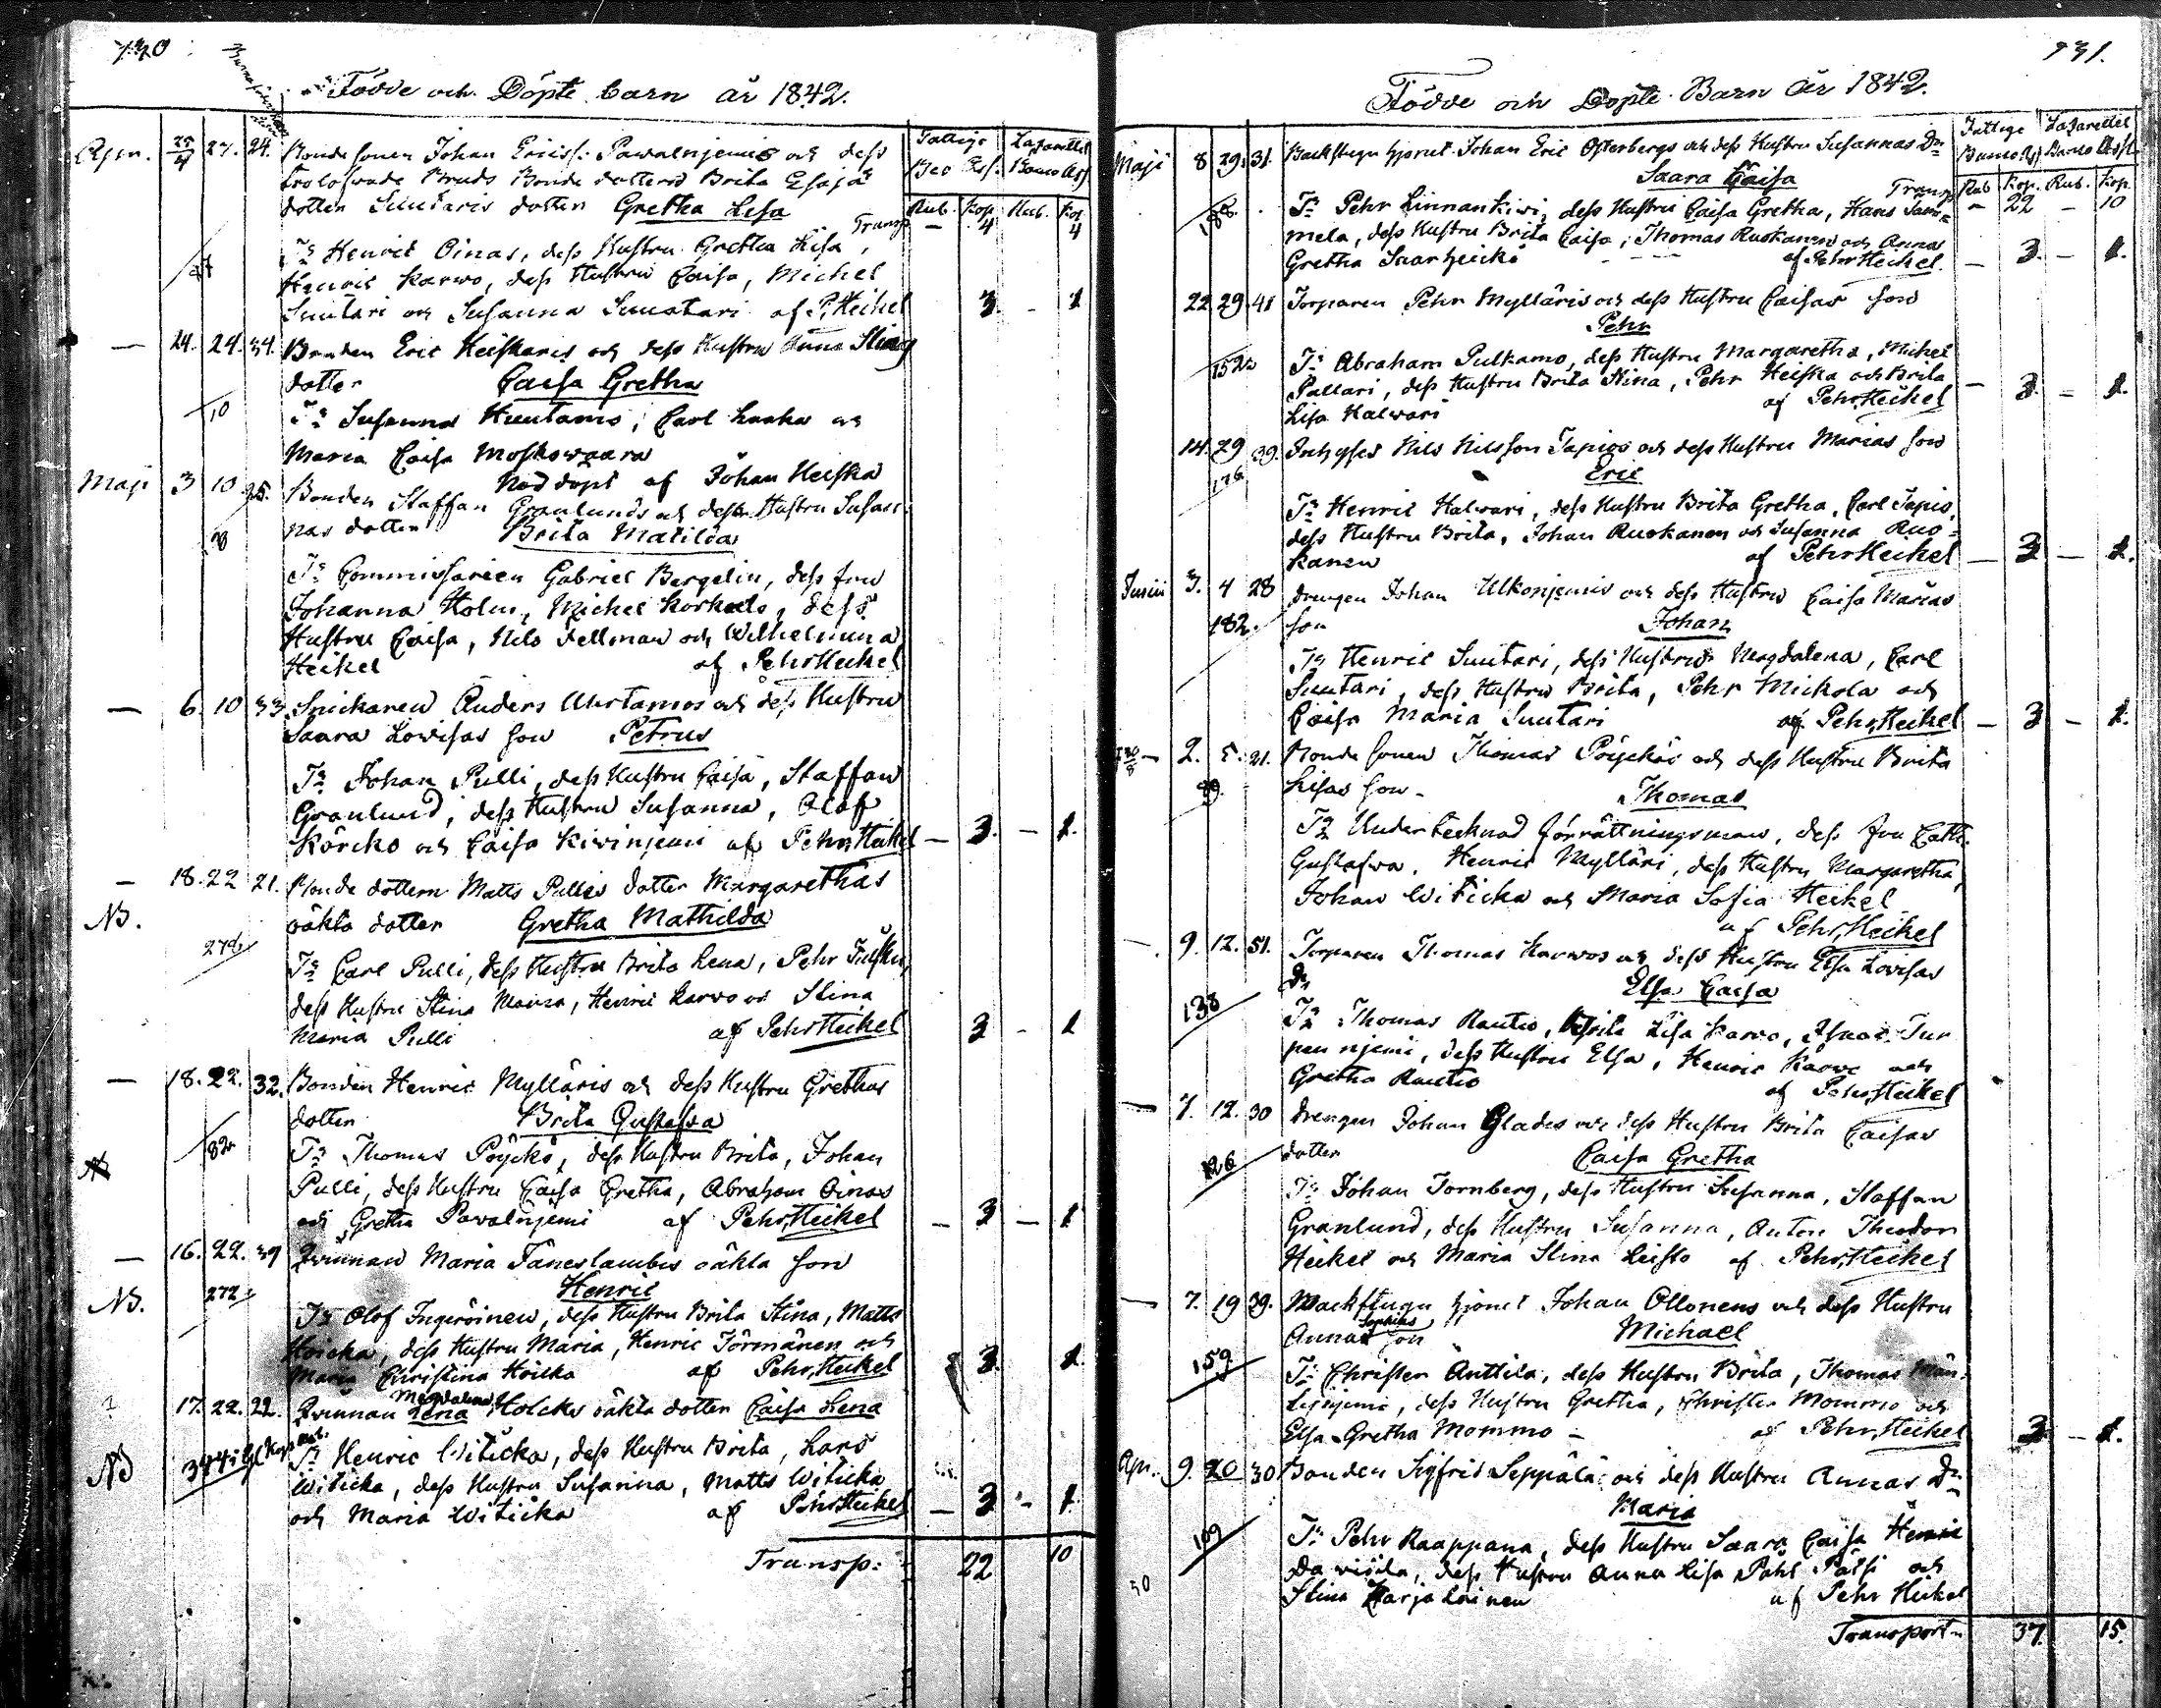 730
Födde och Döpte barn år 1842.
Apr. 27. 24. Bondesonen Johan Ericss: Pawalnjemis och dess
trolofwade Bruds Bonde dottern Brita Esaja
dotter Suutaris dotter Gretha Lisa
Fattige Lazarettet
Bco Ass. Banco Ass
Rub. Kop. Rub. Kop
Transp — 4 4
Tn Henric Oinas, dess Hustru Gretha Lisa,
Henric Karwo, dess Hustru Caisa, Michel
Suutari och Susanna Suutari af P. Heikel 3 - 1
— 24. 24. 34. Bonden Eric Heiskaris och dess Hustru Anna Stinas
dotter Caisa Gretha
10 Tn Susanna Huutamo, Carl Laaka och
Maria Caisa Moskowaara
Nöddöpt af Johan Heiska
Maji 3 10 25. Bonden Staffan Granlunds och dess Hustru Susan
nas dotter Brita Matilda
Tn Commissarien Gabriel Bergelin, dess fru
Johanna Holm, Michel Korkalo, dess
Hustru Caisa, Nils Fellman och Wilhelmina
Heikel af Pehr Heikel
— 6. 10 33. Snickaren Anders Uurtamos och dess Hustru
Saara Lowisas son Petrus
Tn Johan Pulli, dess Hustru Caisa, Staffan
Granlund, dess Hustru Susanna, Olof
Körckö och Caisa Kivinjemi af Pehr Heikel — 3. — 1.
— 18. 22 21. Bonde dottern Matts Pullis dotter Margarethas
NB. oäkta dotter Gretha Mathilda
272 Tn Carl Pulli, dess Hustru Brita Lena, Pehr
dess Hustru Stina Maria, Henric Karvo och Stina
Maria Pulli af Pehr Heikel 3 - 1
— 18. 22. 32. Bonden Henric Mylläris och dess Hustru Grethas
dotter Brita Gustafva
82 Tn Thomas Pöyckö, dess Hustru Brita, Johan
Pulli, dess Hustru Caisa Gretha, Abraham Oinas
och Gretha Pawalnjemi af Pehr Heikel — 3 — 1
— 16. 22. 39 Qvinnan Maria Täneslambis oäkta son
NB. 272 Henric
Tn Olof Ingeröinen, dess Hustru Brita Stina, Matts
Höicka, dess Hustru Maria, Henric Törmänen och
Maria Christina Höicka af Pehr Heikel 3. 1.
17. 22. 22. Qvinnan Magdalena Lena Holcks oäkta dotter Caisa Lena
NB Tn Henric Witicka, dess Hustru Brita, Lars
Witicka, dess Hustru Susanna, Matts Witicka
och Maria Witicka af Pehr Heikel — 3 - 1
Transp: 22 10
731.
Födde och Döpte Barn År 1842.
Fattige Lazarettet
Banco Ass Banco Ass
Rub Kop. Rub. Kop.
Maji 8 29. 31. Backstugu hjonet Johan Eric Österbergs och dess Hustru Susannas Dr
Saara Caisa
Transp — 22 — 10
188 Tn Pehr Linnankiwi, dess Hustru Caisa Gretha, Hans Sam=
mela, dess Hustru Brita Caisa, Thomas Ruokanen och Anna
Gretha Saarheickö af Pehr Heikel. — 3 — 1.
22 29 41 Torparen Pehr Mylläris och dess Hustru Caisas son
Pehr
152 Tn Abraham Pulkamo, dess Hustru Margaretha, Michel
Pallari, dess Hustru Brita Stina, Pehr Heiska och Brita
Lisa Halwari af Pehr Heikel — 3. — 1.
14. 29 39. Inhyses Nils Nilsson Tapios och dess Hustru Marias son
176 Eric
Tn Henric Halwari, dess Hustru Brita Gretha, Carl Tapio,
dess Hustru Brita, Johan Ruokanen och Susanna Ruo=
kanen af Pehr Heikel — 3 — 1.
Junii 3. 4 28 drengen Johan Ulkonjemis och dess Hustru Caisa Marias
182. son Johan
Tn Henric Suutari, dess Hustru Magdalena, Carl
Suutari, dess Hustru Brita, Pehr Mickola och
Caisa Maria Suutari af Pehr Heikel — 3 — 1.
— 2. 5. 21. Bonde sonen Thomas Pöyckös och dess Hustru Brita
89. Lisas son Thomas
Tn Undertecknad förrättningsman, dess fru Cath.
Gustafwa, Henric Mylläri, dess Hustru Margaretha,
Johan Witicka och Maria Sofia Heikel
af Pehr Heikel
— 9. 12. 51. Torparen Thomas Karwos och dess Hustru Elsa Lovisas
Dr Elsa Caisa
138 Tn Thomas Rautio, Brita Lisa Karvo, Isaac Tur
pennjemi, dess Hustru Elsa, Henric Karvo och
Gretha Rautio af Pehr Heikel
— 7. 12. 30 drengen Johan Glades och dess Hustru Brita Caisas
dotter Caisa Gretha
126 Tn Johan Tornberg, dess Hustru Susanna, Staffan
Granlund, dess Hustru Susanna, Anton Theodor
Heikel och Maria Stina Leisto af Pehr Heikel
— 7. 19 39. Backstugu hjonet Johan Ollonens och dess Hustru
Annas Sophias son Michael
159 Tn Christer Anttila, dess Hustru Brita, Thomas Män=
dess Hustru Gretha, Christer Mommo och
Elsa Gretha Mommo — af Pehr Heikel 3 — 1.
Apr. 9. 20 30 Bonden Sigfrid Seppälä och dess Hustru Annas Dr
Maria
109 Tn Pehr Raappana, dess Hustru Saara Caisa Henric
dess Hustru Anna Lisa Påhl Pätsi och
Stina Karjalainen af Pehr Heikel
Transport 37 15.